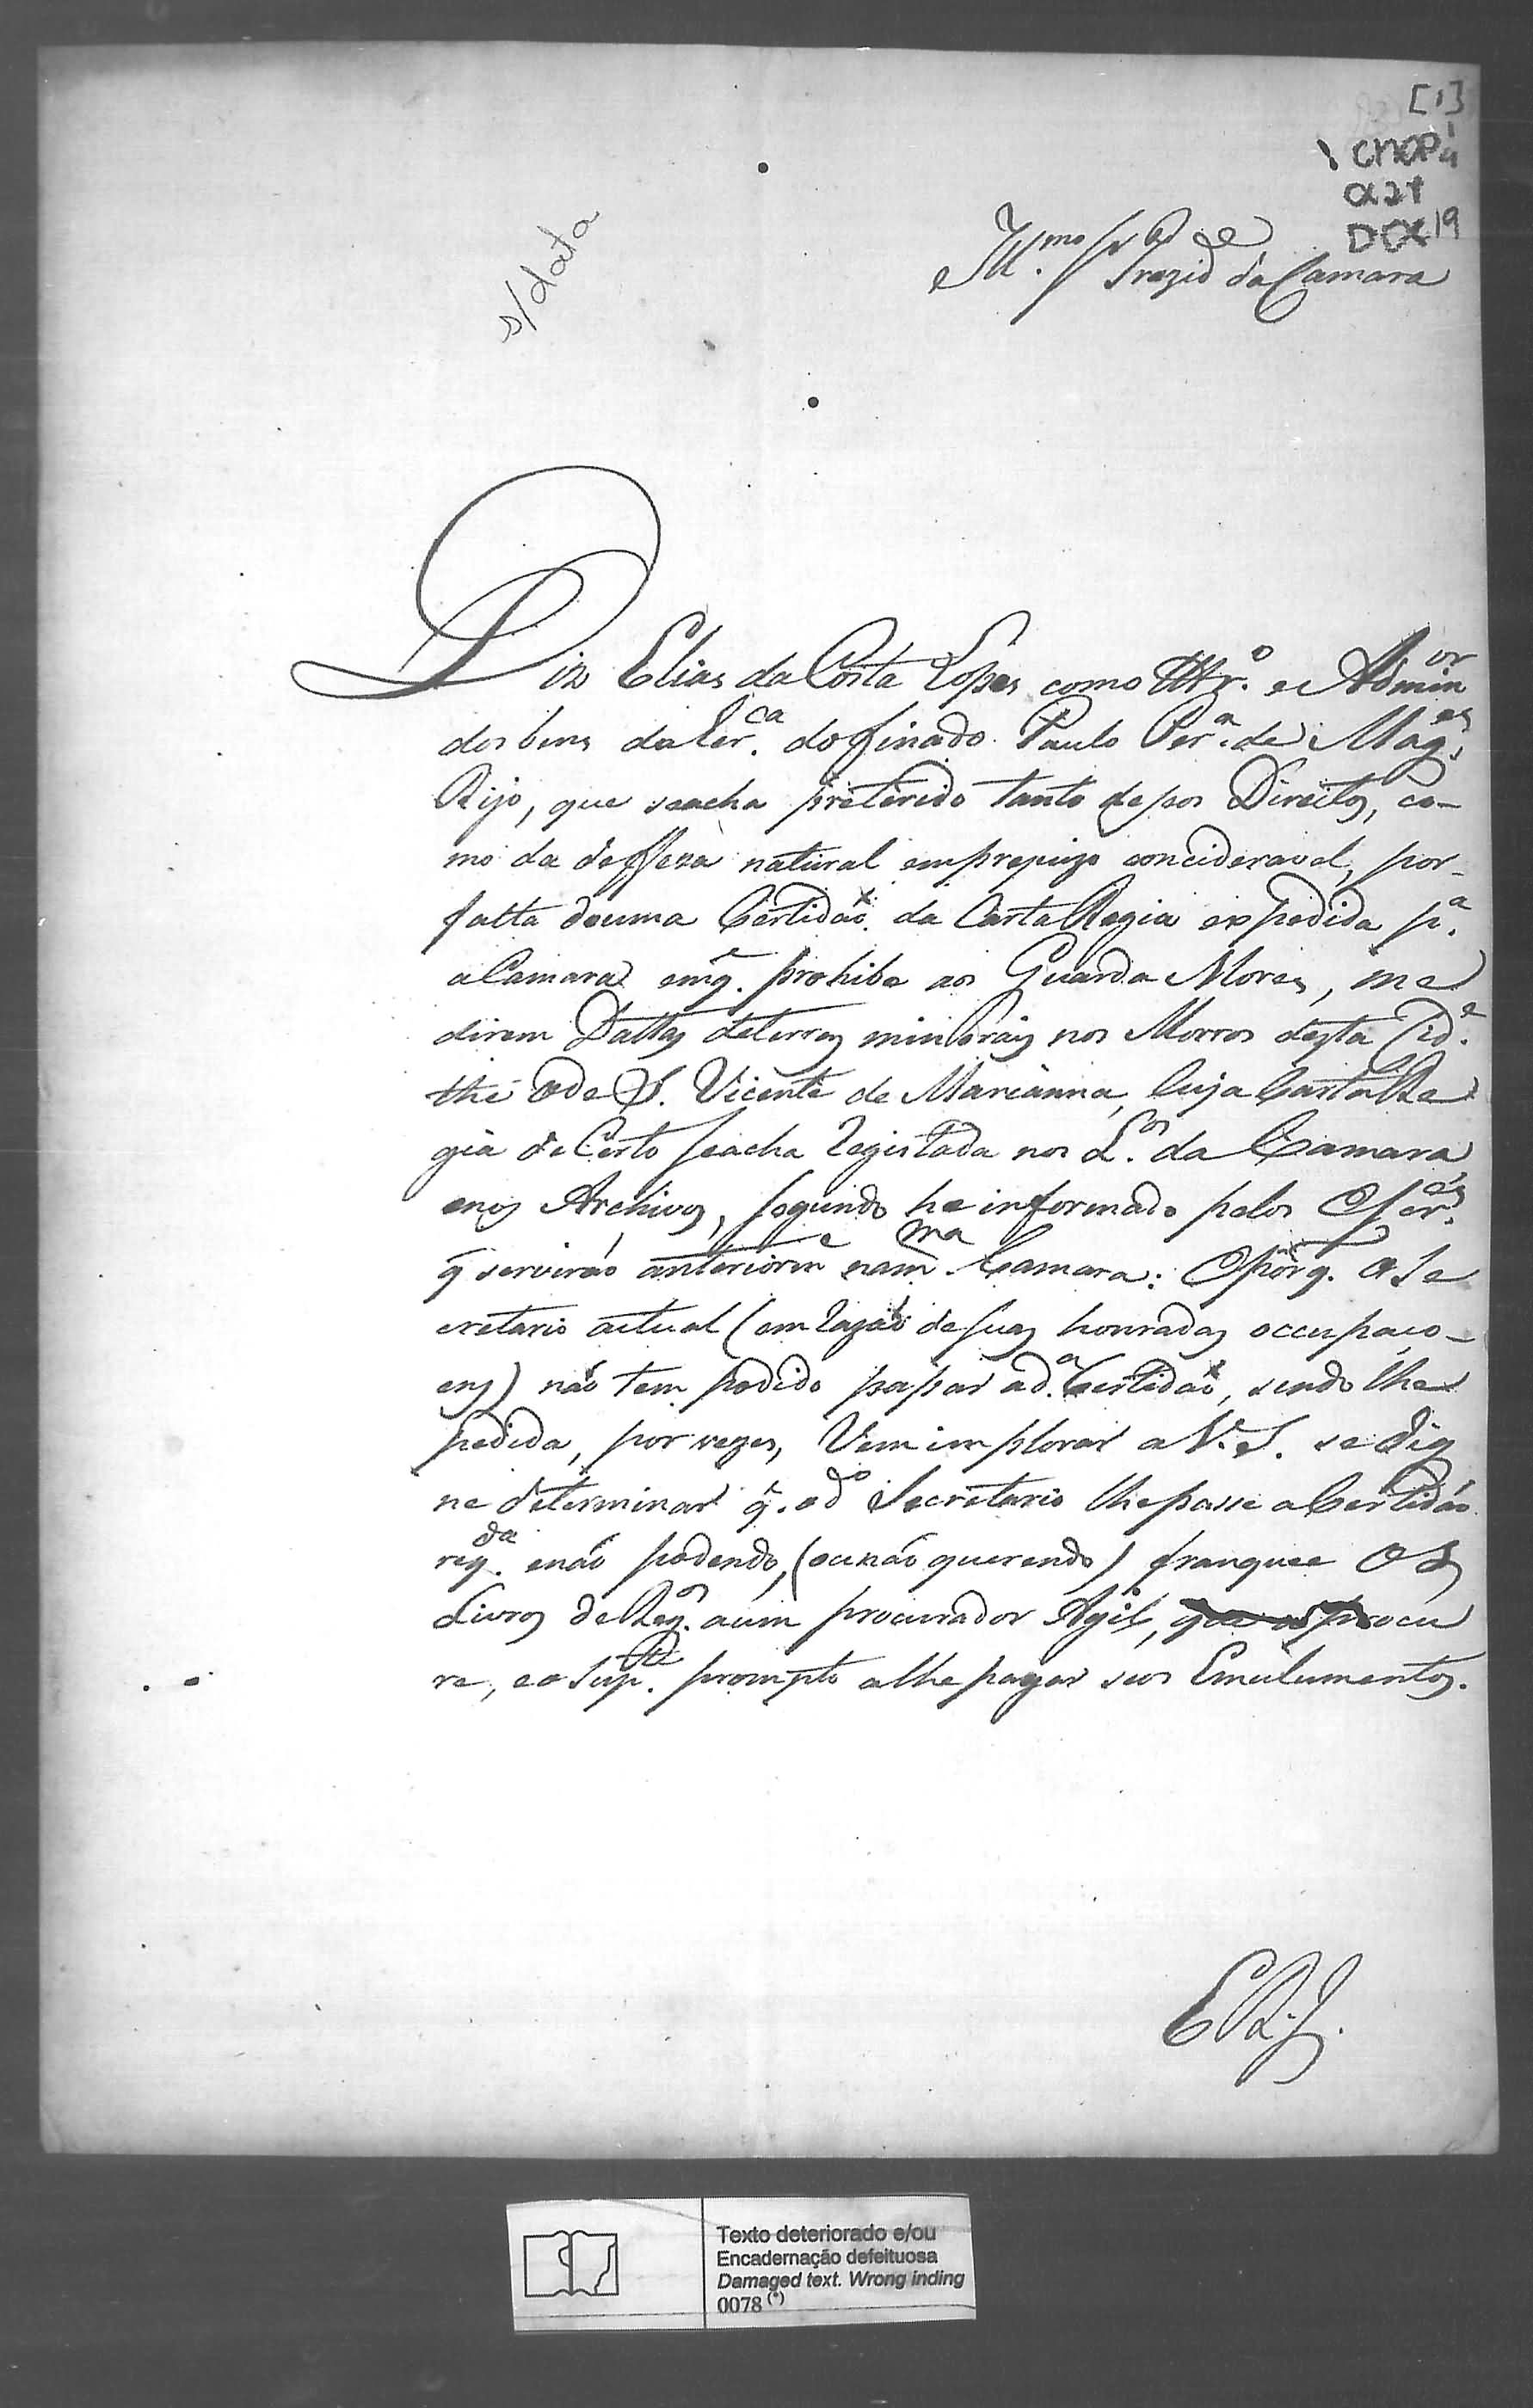 [1]
CMOP
Cx 21
DOC 19
s/data
Ill.mo Sr Prezid.e da Camara
Diz Elias da Costa Lopes como e Admin.or
dos bens da Her.ca do finado Paulo Per.a de Mag.es
Rijo, que seacha preterido tanto de seos Direitos, co-
mo da deffeza natural emprejuizo concideravel, por-
falta deuma Certidaõ da Carta Regia expedida p.a
a Camara emq̃. prohibe aos Guarda Mores, me
direm Dattas deterras mineráis nos Morros desta Cid.e
thé ode S. Vicente de Marianna, Cuja Carta Re
gia de Certo seacha Registada nos L.os da Camara,
enos Archivos, segundo he informado pelos Offer.es
q̃ serviraõ anteriorm.e nam.ma Camara: Eporq̃. o Se
cretario actual (em razaõ de suas honradas occupaço-
ens) naõ tem podido passar ad.a Certidaõ, sendo lhe
pedida, por vezes, Vem implorar a V. S. se dig
ne determinar q̃. od.o Secretario lhe passe a Certidaõ
req.da enaõ podendo, (ounaõ querendo) franquee os
Livros de Reg.os aum procurador Agil, que os procu
re, e o Sup.te prompto a lhe pagar seos Emulumentos.
E. R. J.
Texto deteriorado e/ou
Encadernação defeituosa
Damaged text. Wrong inding
0078 (*)